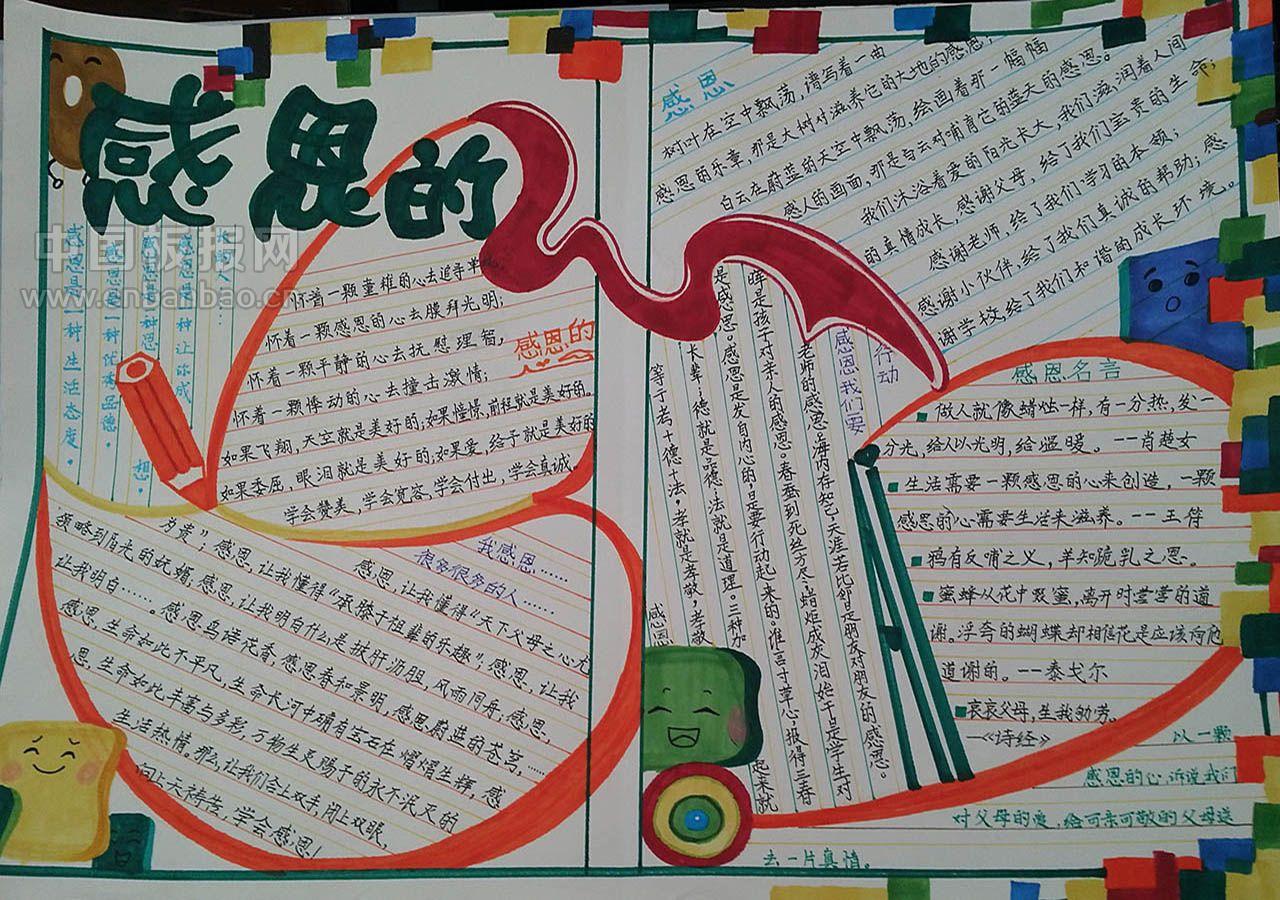 感恩的
中国板报网
www.cnbanbao.cn
感恩是一种生活态度。
感恩是一种优秀品德。
怀着一颗童稚的心去追寻
怀着一颗感恩的心去膜拜光明；
怀着一颗平静的心去抚慰理智，
怀着一颗悸动的心去撞击激情；
如果飞翔，天空就是美好的；如果憧憬，前程就是美好的。
如果委屈，眼泪就是美好的；如果爱，给予就是美好的
学会赞美，学会宽容，学会付出，学会真诚。
感恩的
心
我感恩……
很多很多的人……
感恩，让我懂得“天下父母之心尤
为贵”；感恩，让我懂得“承膝于祖辈的乐趣”，感恩，让我
领略到阳光的妩媚，感恩，让我明白什么是披肝沥胆，风雨同舟；感恩，
让我明白……。感恩鸟语花香，感恩春和景明，感恩蔚蓝的苍穹，……
感恩，生命如此不平凡，生命长河中确有宝石在熠熠生辉，感
恩，生命如此丰富与多彩，万物生灵赐予的永不泯灭的
生活热情。那么，让我们合上双手，闭上双眼，
向上天祷告，学会感恩！
感恩
树叶在空中飘荡，谱写着一曲
感恩的乐章，那是大树对滋养它的大地的感恩；
白云在蔚蓝的天空中飘荡，绘画着那一幅幅
感人的画面，那是白云对哺育它的蓝天的感恩。
我们沐浴着爱的阳光长大，我们滋润着人间
的真情成长，感谢父母，给了我们宝贵的生命；
感谢老师，给了我们学习的本领；
感谢小伙伴，给了我们真诚的帮助；感
谢学校，给了我们和谐的成长环境。
感恩我们要
行动
老师的感恩；海内存知己，天涯若比邻是朋友对朋友的感恩。
晖是孩子对亲人的感恩。春蚕到死丝方尽，蜡炬成灰泪始干是学生对
是感恩。感恩是发自内心的，是要行动起来的。谁言寸草心，报得三春
长辈，德就是品德，法就是道理。三种加
起来就
等于孝＋德＋法，孝就是孝敬，孝敬
感恩名言
做人就像蜡烛一样，有一分热，发一
分光，给人以光明，给温暖。——肖楚女
生活需要一颗感恩的心来创造，一颗
感恩的心需要生活来滋养。——王符
鸦有反哺之义，羊知跪乳之恩。
蜜蜂从花中啜蜜，离开时营营的道
谢。浮夸的蝴蝶却相信花是应该向他
道谢的。——泰戈尔
哀哀父母，生我劬劳。
—《诗经》
以一颗
感恩的心，诉说我们
对父母的爱，给可亲可敬的父母送
去一片真情。